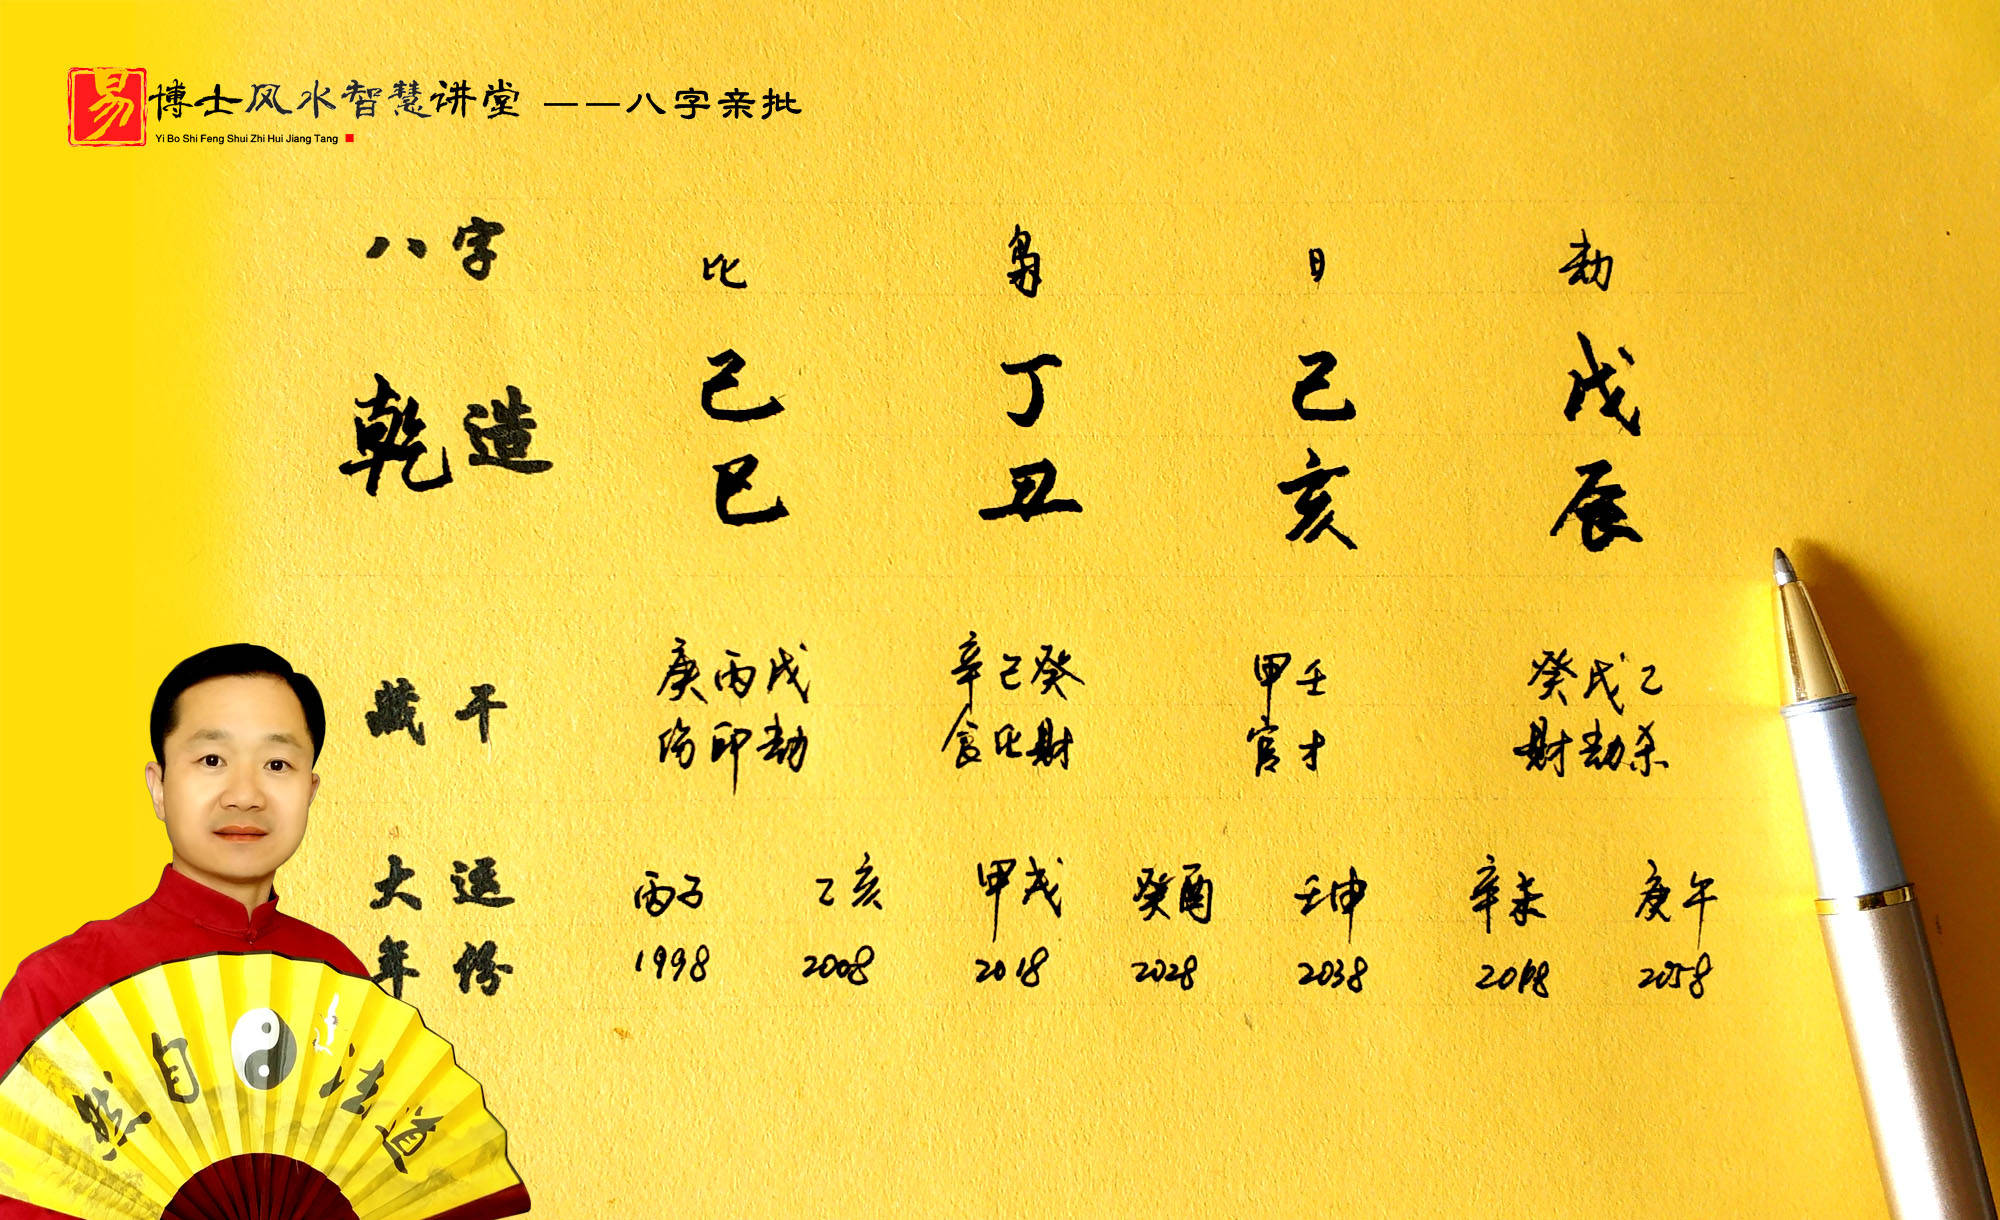 易博士风水智慧讲堂 ——八字亲批
Yi Bo Shi Feng Shui Zhi Hui Jiang Tang
八字 比 枭 日 劫
乾造 己 丁 己 戊
巳 丑 亥 辰
藏干 庚丙戊 辛己癸 甲壬 癸戊乙
伤印劫 食比财 官才 财劫杀
大运 丙子 乙亥 甲戌 癸酉 壬申 辛未 庚午
年份 1998 2008 2018 2028 2038 2048 2058
然自法道